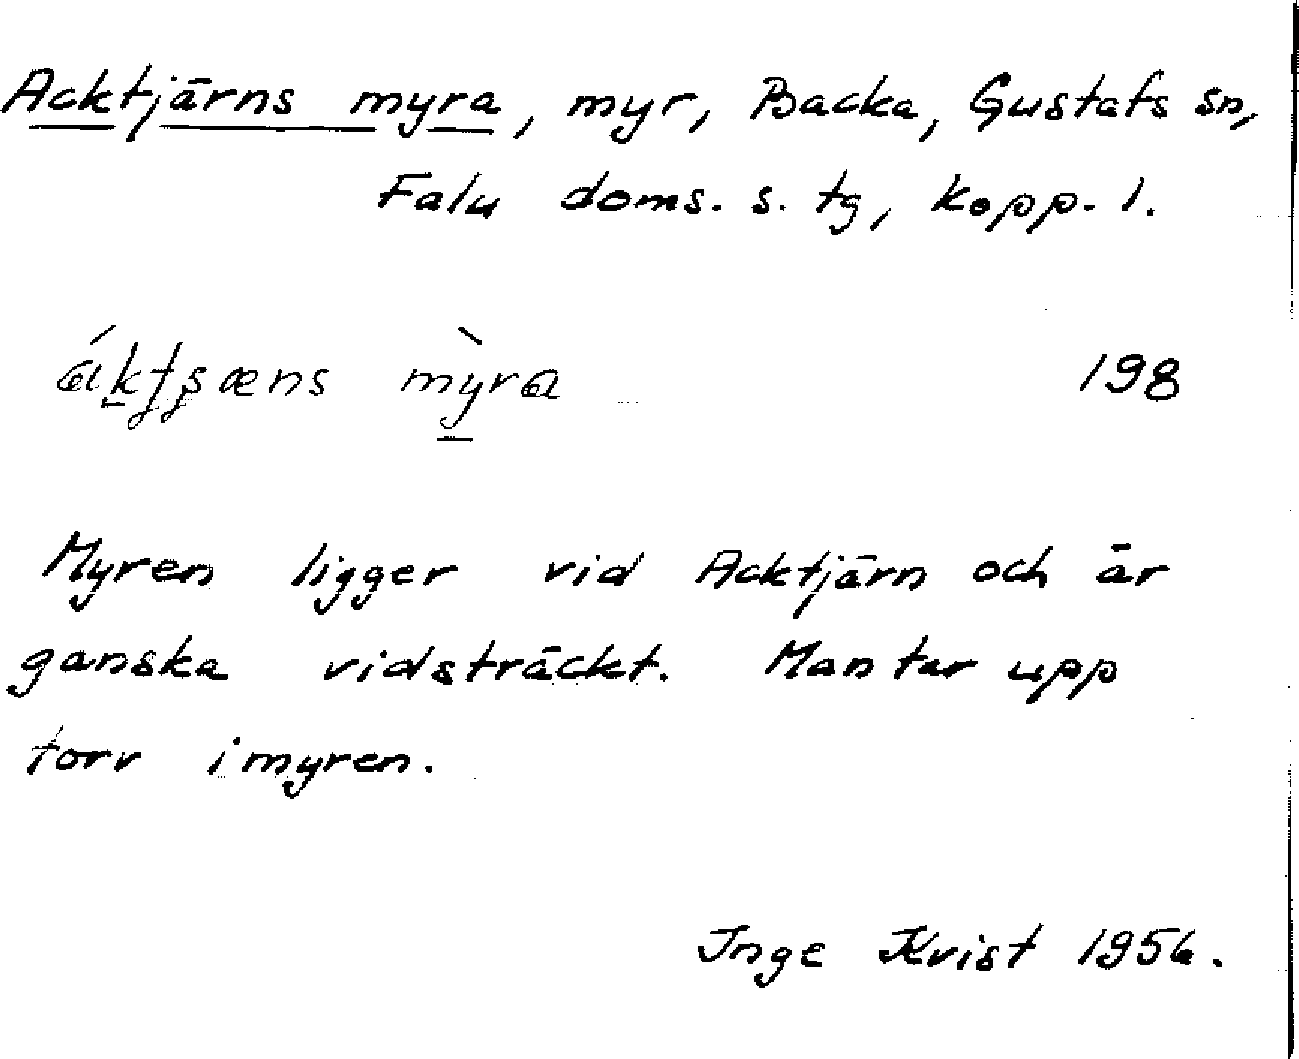 Acktjärns myra, myr, Backa, Gustafs sn,
Falu doms. s. tg, Kopp. l.
myra 198
Myren ligger vid Acktjärn och är
ganska vidsträckt. Man tar upp
torv i myren.
Inge Kvist 1956.